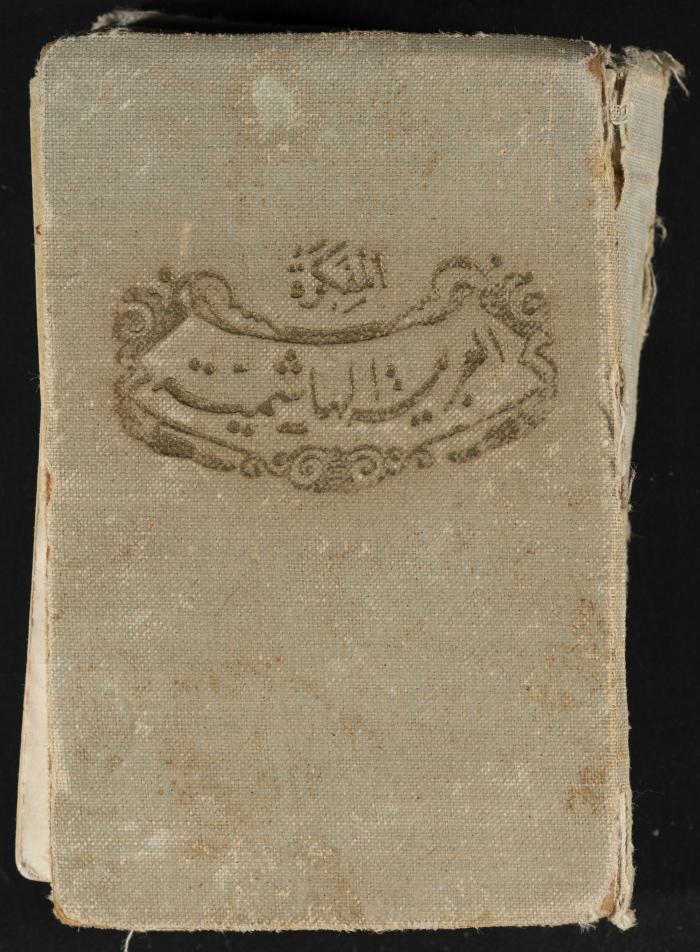 المفَكَّرَةُ
العربية الهاشمية